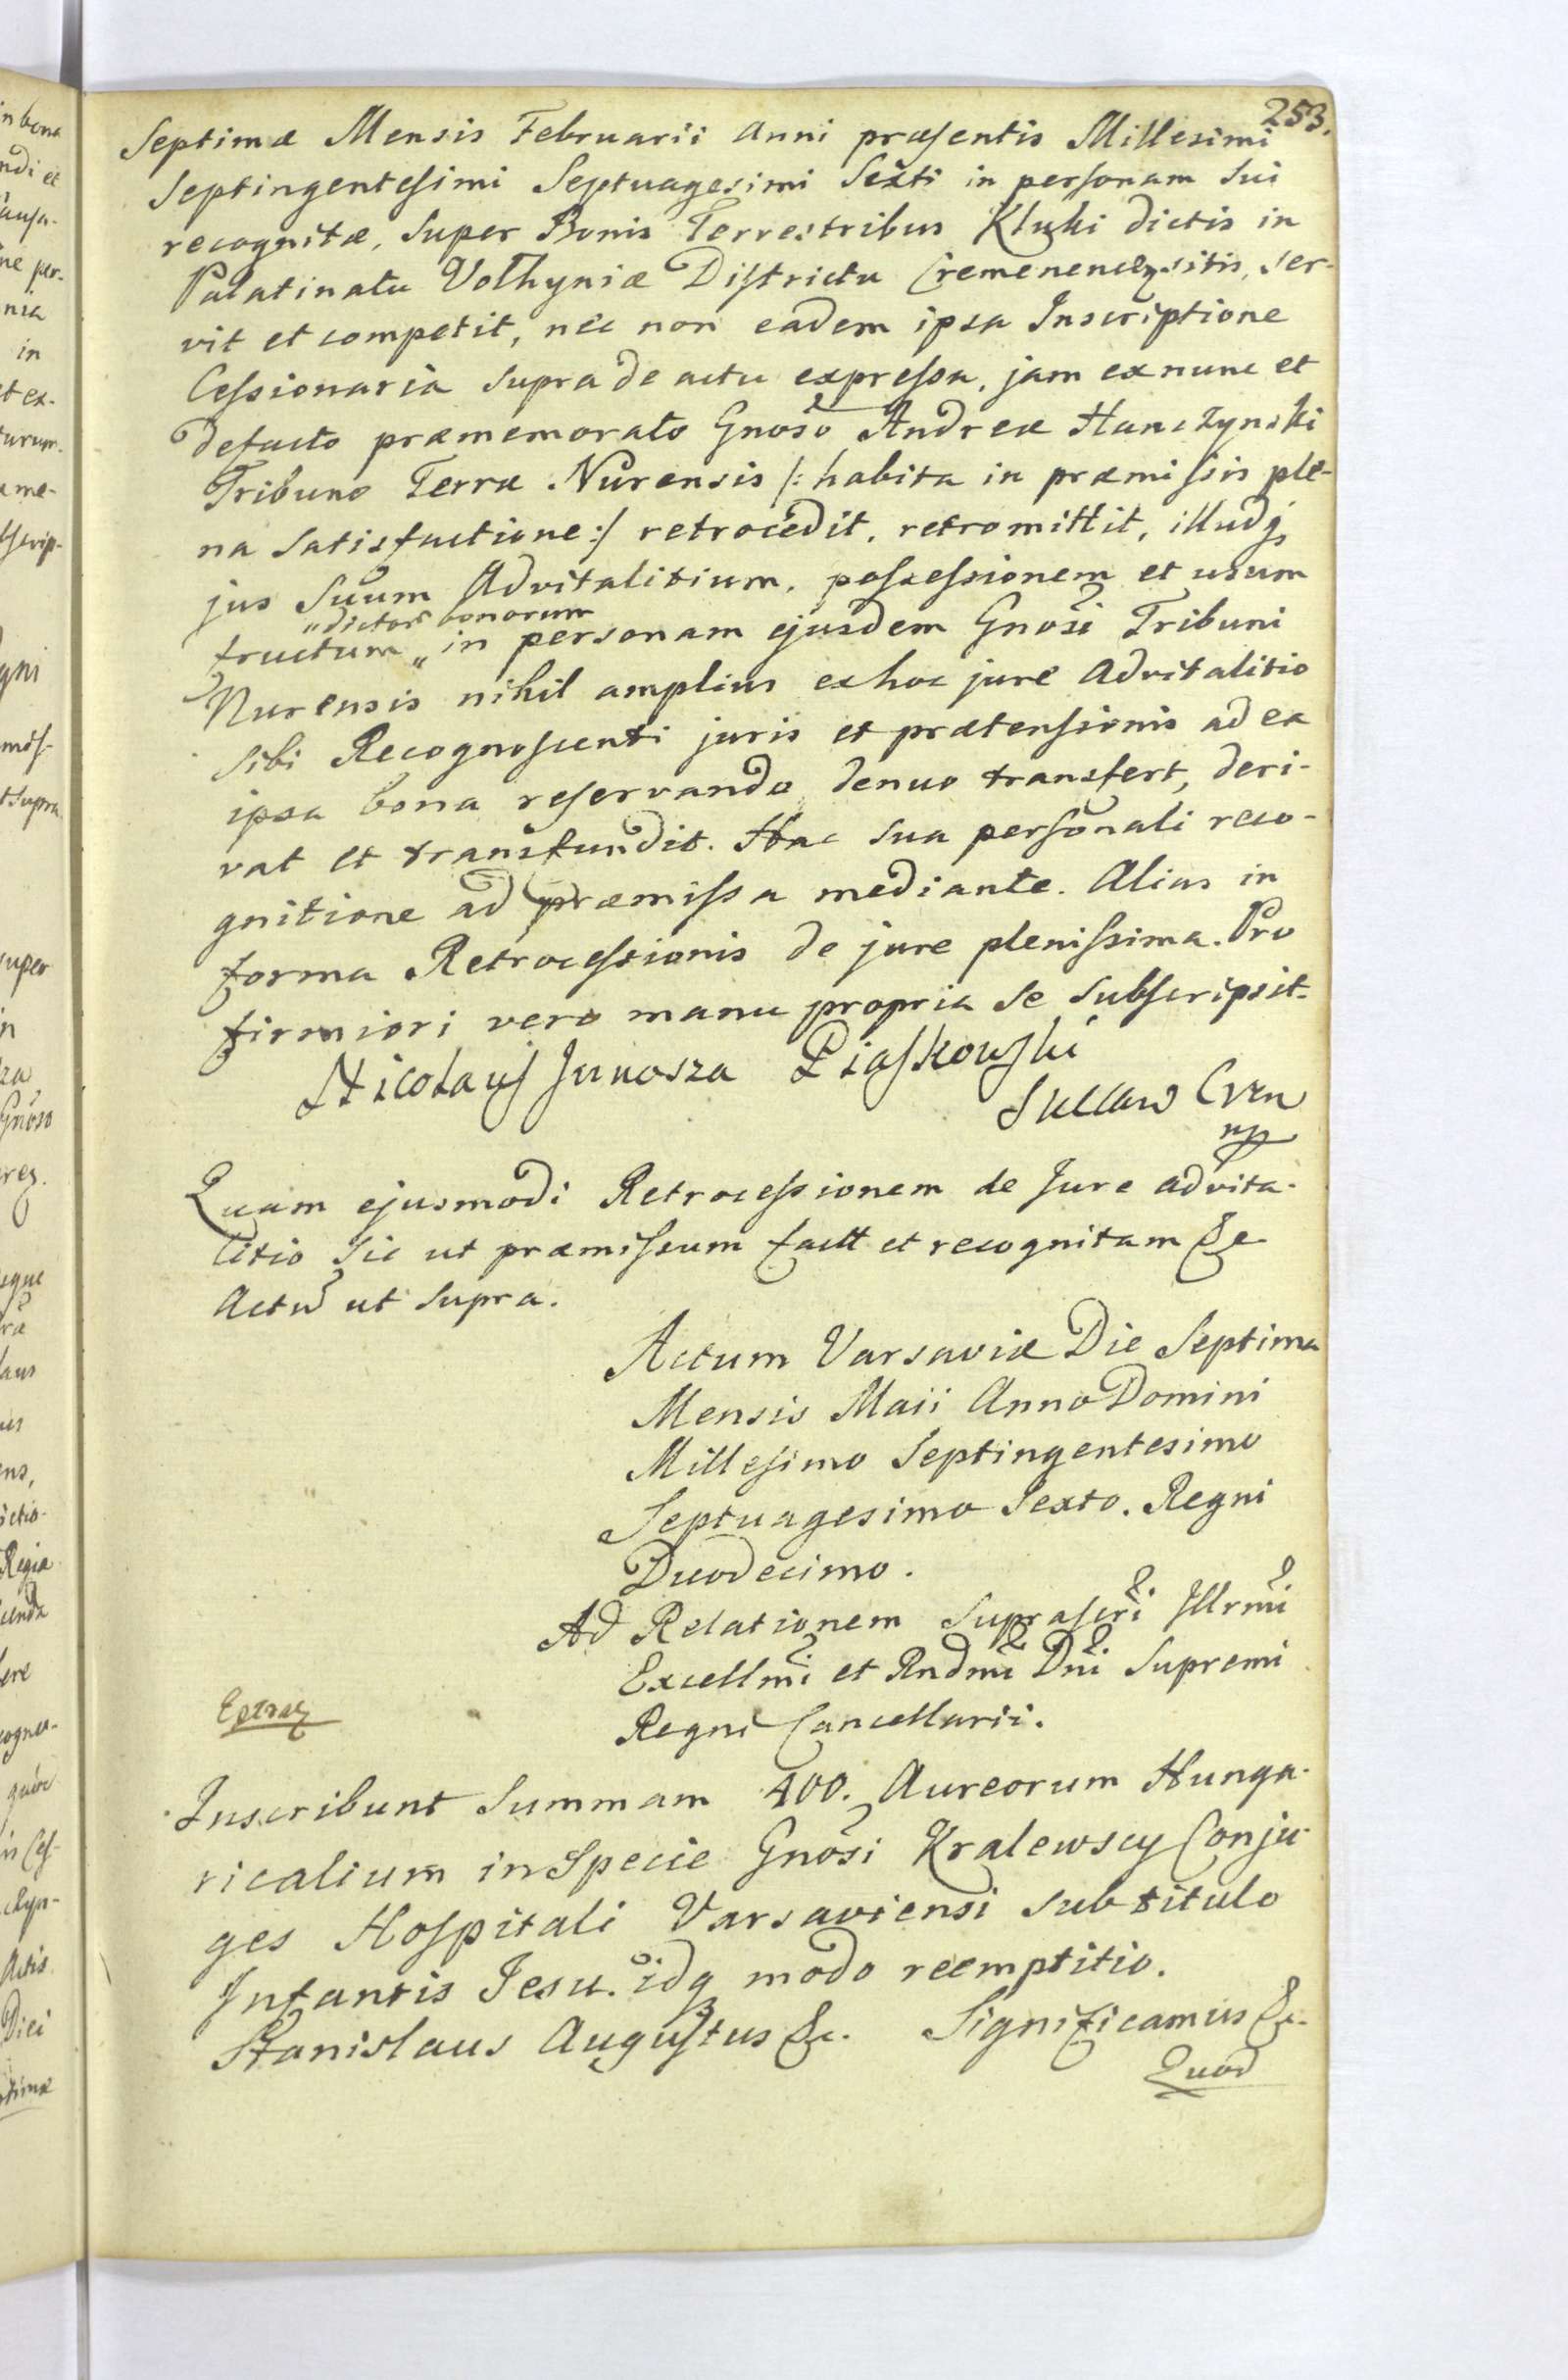 253.
Septimæ Mensis Februarii Anni præsentis Millesimi
Septingentesimi Septuagesimi Sexti in personam Sui
recognitæ, Super Bonis Terrestribus Kluki dictis in
Palatinatu Volhyniæ Districtu Cremenencẏ sitis, ser-
vit et competit, nec non eadem ipsa Inscriptione
Cessionaria supra de actu expressa, jam ex nunc et
defacto præmemorato Gnoso Andreæ Hanczynski
Tribuno Terræ Nurensis /: habita in præmissis ple-
na Satisfactione :/ retrocedit, retromittit, illudq
jus Suum Advitalitium, possessionem et usum
fructum „ dictor bonorum „ in personam ejusdem Gnosi Tribuni
Nurensis nihil amplius ex hoc jure Advitalitio
Sibi Recognoscenti juris et prætensionis ad ea
ipsa bona reservando denuo transfert, deri-
vat et transfundit. Hac Sua personali reco-
gnitione ad præmissa mediante. Alias in
forma Retrocessionis de jure plenissima. Pro
firmiori vero manu propria se Subscripsit.
Nicolaus Junosza Piaskowski
Succam Crzn
mp
Quam ejusmodi Retrocessionem de Jure advita-
litio Sic ut præmissum factt et recognitam &c
Actu ut Supra.
Actum Varsaviæ Die Septima
Mensis Maii Anno Domini
Millesimo Septingentesimo
Septuagesimo Sexto. Regni
Duodecimo.
Ad Relationem Suprascri Illrmi
Excellmi et Rndmi Dni Supremi
Regni Cancellarii.
Inscribunt Summam 400. Aureorum Hunga-
ricalium in Specie Gnosi Kralewscy Conju-
ges Hospitali Varsaviensi sub titulo
Infantis Jesu. idq modo reemptitio.
Stanislaus Augustus &c. Significamus &c.
Quod